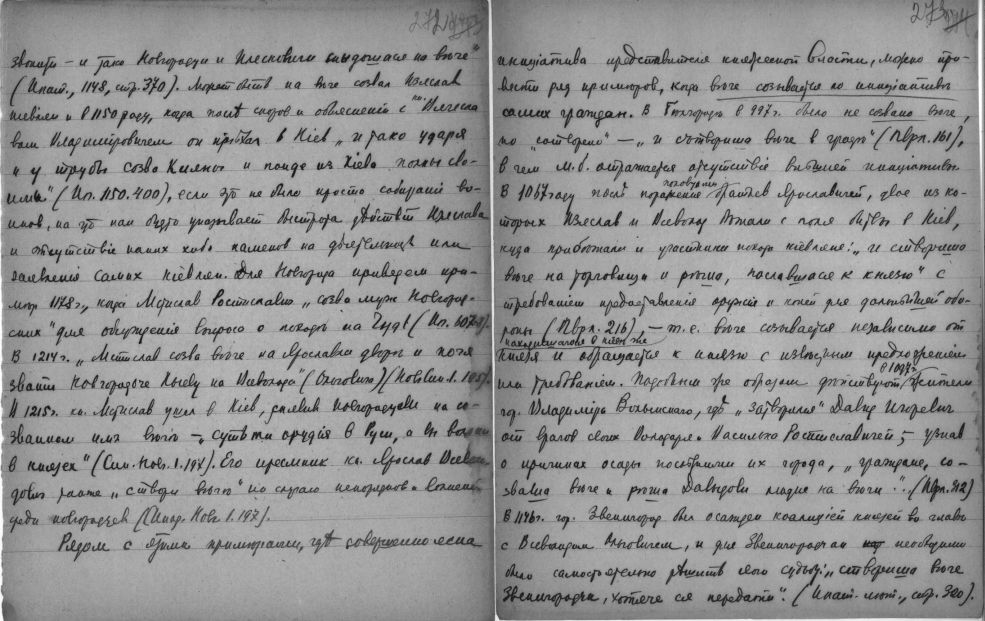 272
звонити – и тако Новгородци и Плесковичи снидошася на вече"
(Ипат., 1148, стр. 370). Может быть на вече созвал Изяслав
киевлян и в 1150 году, когда после споров и объяснений с Вячесла
вом Владимировичем он прибыл в Кiев „и тако ударя
и у трубы созва Кияны и поиде из Кiева полкы сво
ими" (Ип. 1150. 400), если это не было просто собранiе во-
инов, на что как будто указывает быстрота действiй Изяслава
и отсутствiе каких либо намеков на деятельность или
заявленiе самих кiевлян. Для Новгорода приведем при-
мер 1178 г., когда Мстислав Ростиславич „созва мужи Новгород-
скиѣ" для обсужденiя вопроса о походе на Чудь (Ип.
В 1214 г. „Мстислав созва вече на Ярославли дворе и поча
звати Новгородьче Кыеву на Всеволода"
В 1215 г. кн. Мстислав ушел в Кiев, заявив новгородцам на со-
званном им вече – „суть ми орудiя в Руси, а вы вольни
в князех" (Син. Новг. 1. 197). Его преемник кн. Ярослав Всево
дович также „створи вече" по случаю непорядков и волнений
среди новгородцев
Рядом с этими примерами, где совершенно ясна
273
инициатива представителя княжеской власти, можно при-
вести ряд примеров, когда вече созывается по инициативе
самих граждан. В Белгороде в 997 г. было не созвано вече,
но „сотворено" – „и сътвориша вече в граде" (Лврл. 161),
в чем м. б. отражается отсутствiе высшей инициативы.
В 1067 году после поражения половцами братьев Ярославичей, двое из ко-
торых Изяслав и Всеволод бежали с поля битвы в Кiев,
куда прибежали и участники похода кiевляне: „и створиша
вече на торговищи и реша, пославшеся к князю" с
требованiем предоставленiя оружiя и коней для дальнейшей обо-
роны (Лврл. 216), – т. е. вече созывается независимо от
находящагося в Кiеве же
князя и обращается к князю с известным предложенiем
или требованiем. Подобным же образом действуют в 1097 г. жители
гор. Владимiра Волынскаго, где „затворился" Давид Игоревич
от врагов своих Володаря и Василько Ростиславичей; – узнав
о причинах осады последними их города, „граждане, со-
звавша вече и реша Давыдови людие на вечи". (Лврл. 312)
В 1146 г. гор. Звенигород был осажден коалицiей князей во главе
с Всеволодом Ольговичем, и для Звенигородчан необходимо
было самостоятельно решить свою судьбу: „створиша вече
Звенигородци, хотяче ся передати". (Ипат. лет., стр. 320).